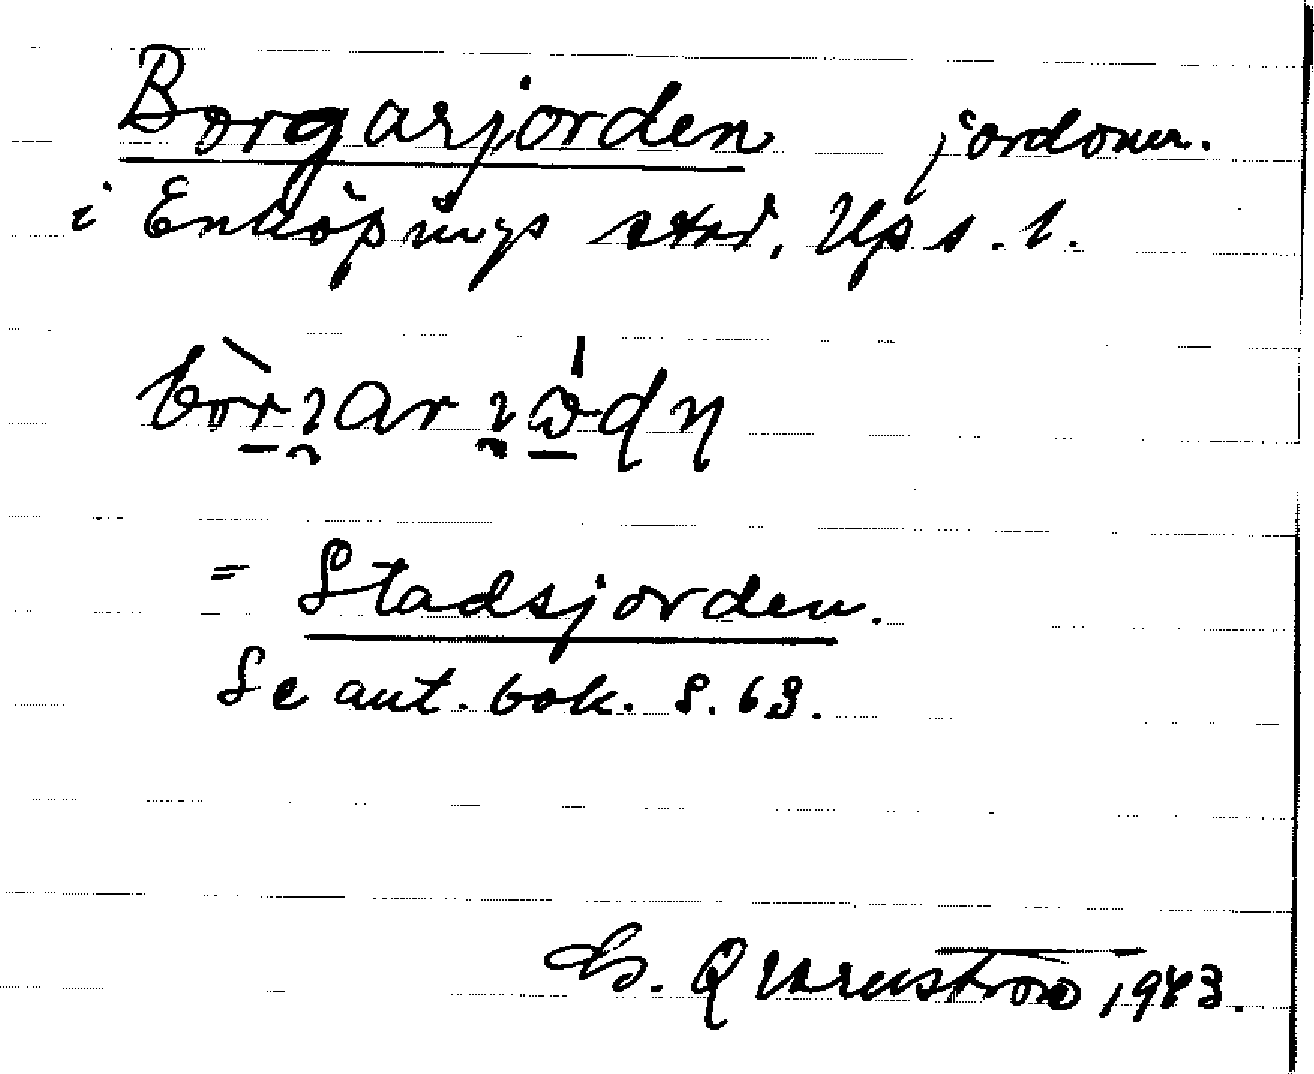 Borgarjorden jordomr.
i Enköpings stad. Ups. l.
= Stadsjorden.
Se ant. bok. S. 63.
G. Qvarnström 1943.